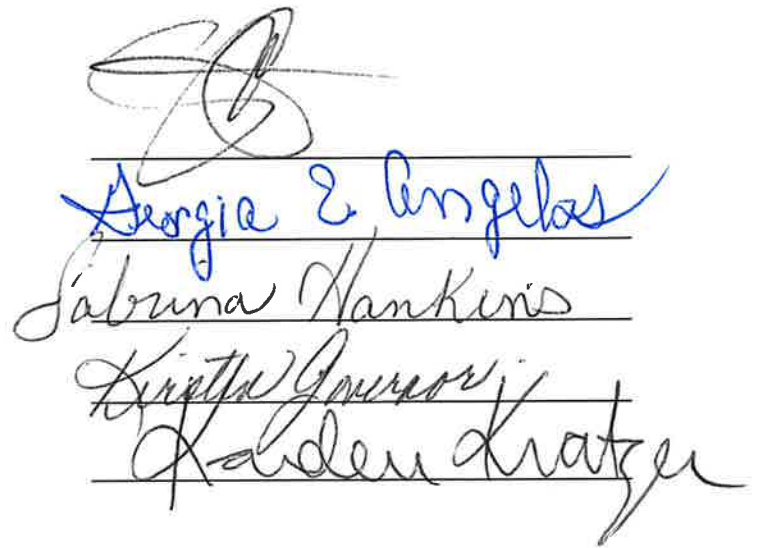 Georgia E Angelos
Sabrina Hankins
Governor
Kaiden Kratzer